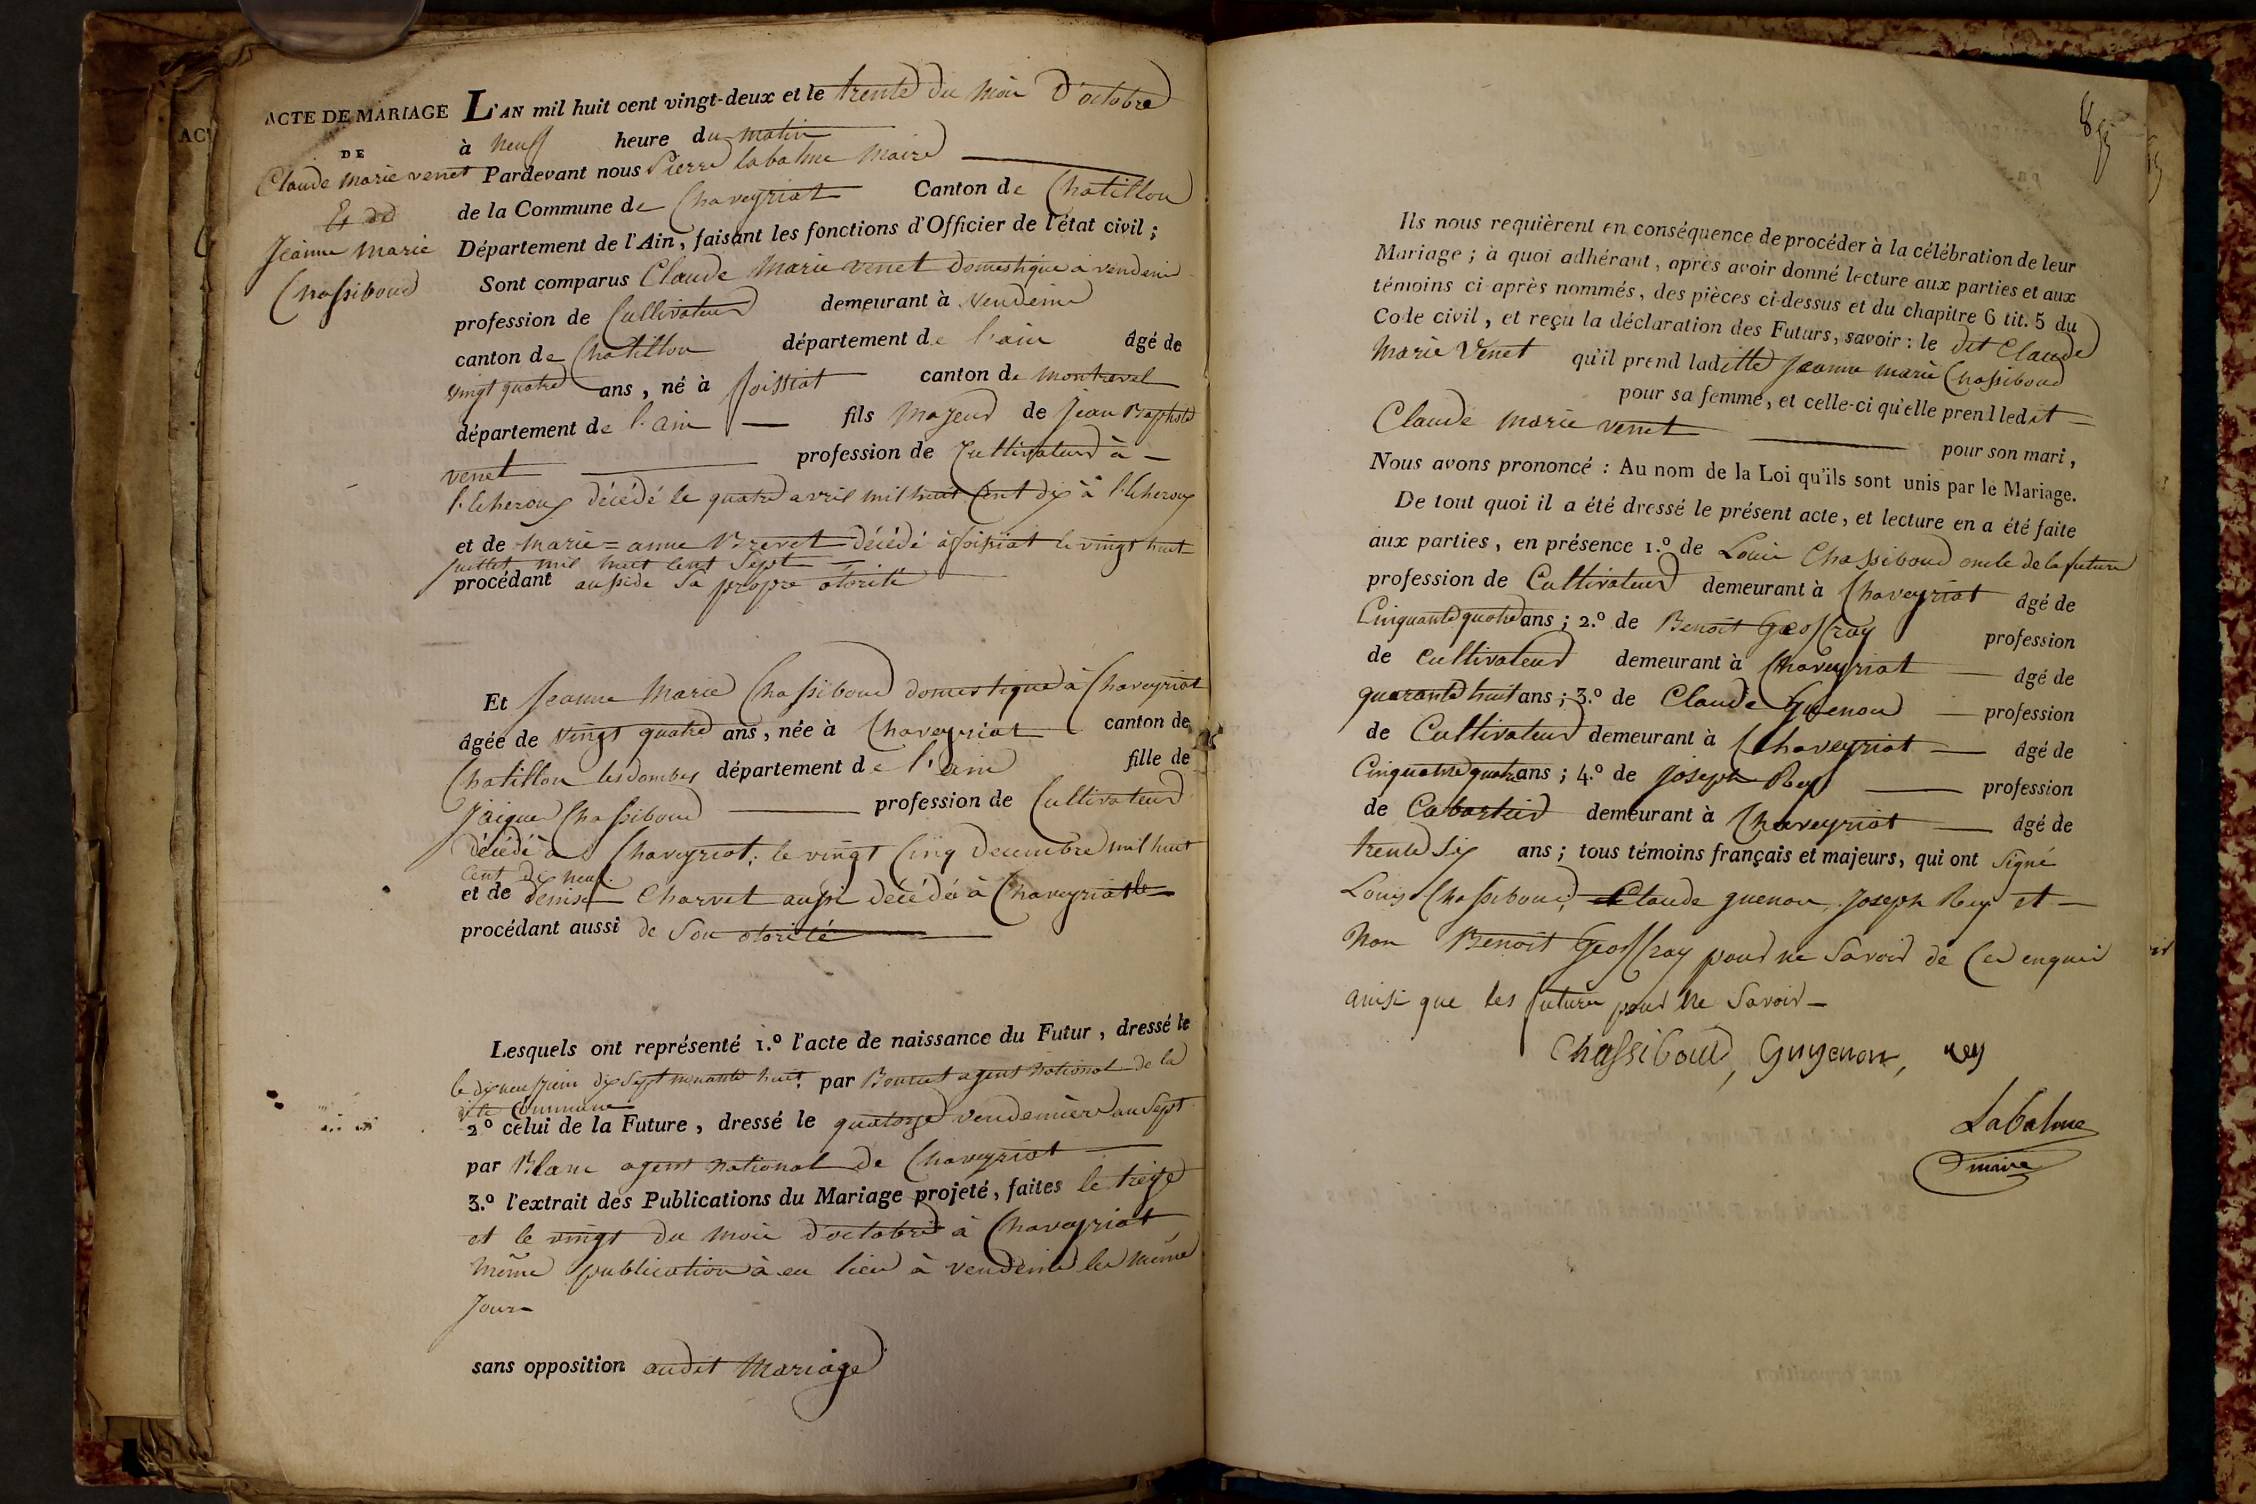 ACTE DE MARIAGE
DE
Claude marie venet
Et de
Jeanne marie
Chassiboud
L'AN mil huit cent vingt-deux et le trente du mois d'octobre
à neuf heure du matin
Pardevant nous Pierre labalme maire
de la Commune de Chaveyriat Canton de Chatillon
Département de l'Ain, faisant les fonctions d'Officier de l'état civil ;
Sont comparus Claude Marie venet domestique à vendeins
profession de Cultivateur demeurant à vendeins
canton de Chatillon département de l'ain âgé de
vingt quatre ans, né à foissiat canton de montrevel
département de l'ain fils majeur de jean Baptiste
venet profession de Cultivateur à
l'Echeroux décédé le quatre avril mil huit Cent dix à l'Echeroux
et de marie = anne Brevet décédé à foissiat le vingt huit
juillet mil huit cent Sept
procédant aussi de Sa propre otorité
Et Jeanne Marie Chassiboud domestique à Chaveyriat
âgée de vingt quatre ans, née à Chaveyriat canton de
Chatillon lesdombes département de l'ain fille de
jaique Chassiboud profession de Cultivateur
décédé à Chaveyriat, le vingt Cinq decembre mil huit
Cent dix neuf
et de denise Charvet aussi décédée à Chaveyriat le
procédant aussi de Son otorité
Lesquels ont représenté 1.º l'acte de naissance du Futur, dressé le
le dix neuf juin dix Sept nonante huit par agent national de la
Commune
2º celui de la Future, dressé le quatorze vendemiere an Sept
par Blanc agent national de Chaveyriat
3.º l'extrait des Publications du Mariage projeté, faites le treize
et le vingt du mois d'octobre à Chaveyriat
même publication à eu lieu à vendeins les même
Jour
sans opposition audit Mariage
85
Ils nous requièrent en conséquence de procéder à la célébration de leur
Mariage ; à quoi adhérant, après avoir donné lecture aux parties et aux
témoins ci-après nommés, des pièces ci-dessus et du chapitre 6 tit. 5 du
Code civil, et reçu la déclaration des Futurs, savoir : le dit Claude
Marie Venet qu'il prend laditte Jeanne marie Chassiboud
pour sa femme, et celle-ci qu'elle prend ledit
Claude marie venet pour son mari,
Nous avons prononcé : Au nom de la Loi qu'ils sont unis par le Mariage.
De tout quoi il a été dressé le présent acte, et lecture en a été faite
aux parties, en présence 1.º de Louis Chassiboud oncle de la future
profession de Cultivateur demeurant à Chaveyriat âgé de
Cinquante quatre ans ; 2.º de Benoit Geoffray profession
de Cultivateur demeurant à Chaveyriat âgé de
quarante huit ans ; 3.º de Claude Guenon profession
de Cultivateur demeurant à Chaveyriat âgé de
Cinquante quatre ans ; 4.º de Joseph Rey profession
de Cabartier demeurant à Chaveyriat âgé de
trente Six ans ; tous témoins français et majeurs, qui ont signé
Louis Chassiboud, Claude guenon, Joseph Rey et
Non Benoit Geoffray pour ne Savoir de Ce enquis
ainsi que les futurs pour ne Savoir
Chassiboud, Guyenon, rey
Labalme
maire